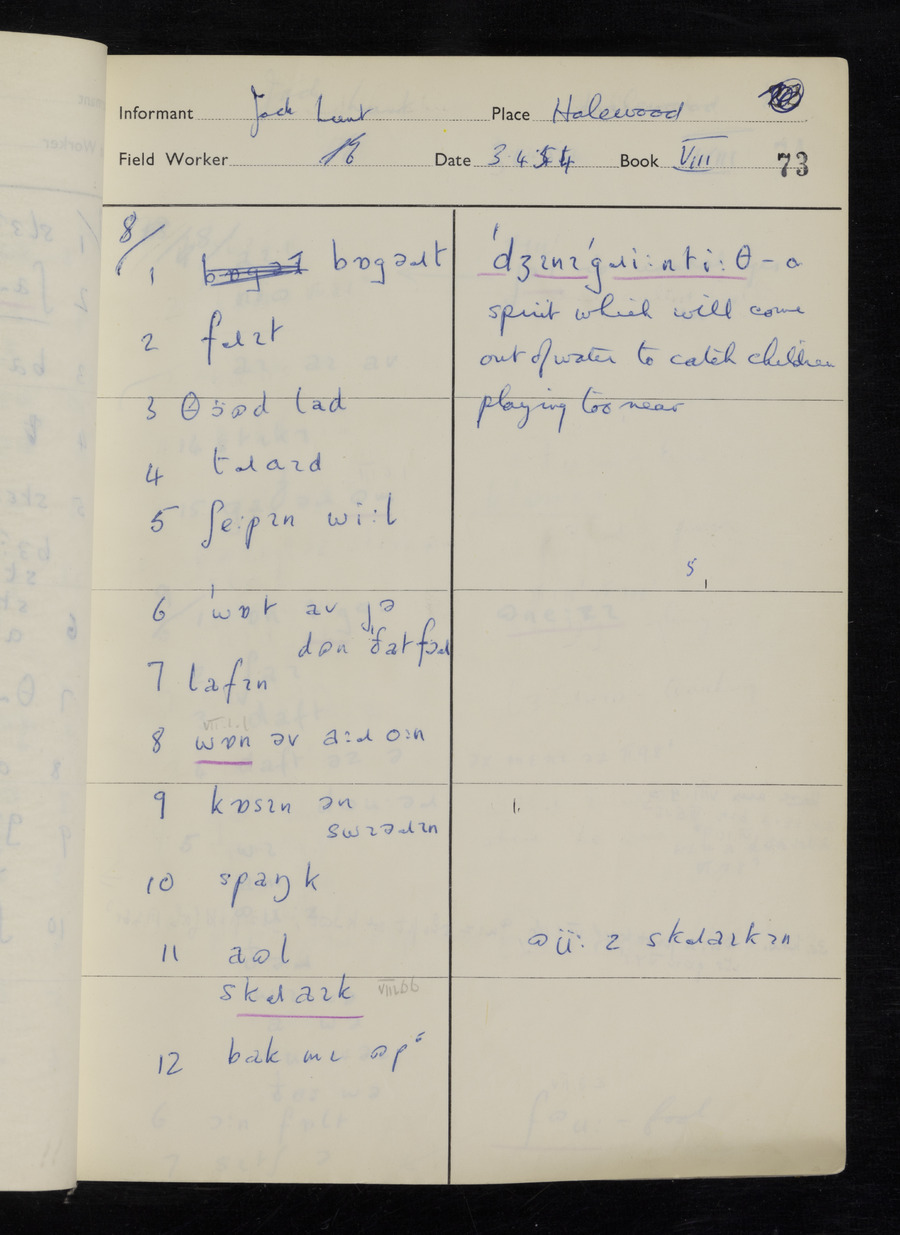 Informant Jack Lunt Place Halewood
Field Worker Date 3 4 54 Book VIII 73
8/
1 bɒgəɹt
2 fɹɪt
3 θɜːd lad
4 tɹaɪd
5 ʃeːpɪn wiːl
6 ˈwɒt av jə
dɒn ˈðat fɔɹ
7 lafɪn
VIII.1.1
8 wɒn əv aːɹ oːn
9 kɒsɪn ən
swɪəɹɪn
10 spaŋk
11 aʊl
skɹaɪk VIII.6.6
12 bak mɪ ʊp
ˈdʒɪnɪˈgɹiːntiːθ – a
spirit which will come
out of water to catch children
playing too near
5
1
1.
ɪ skɹaɪkɪn